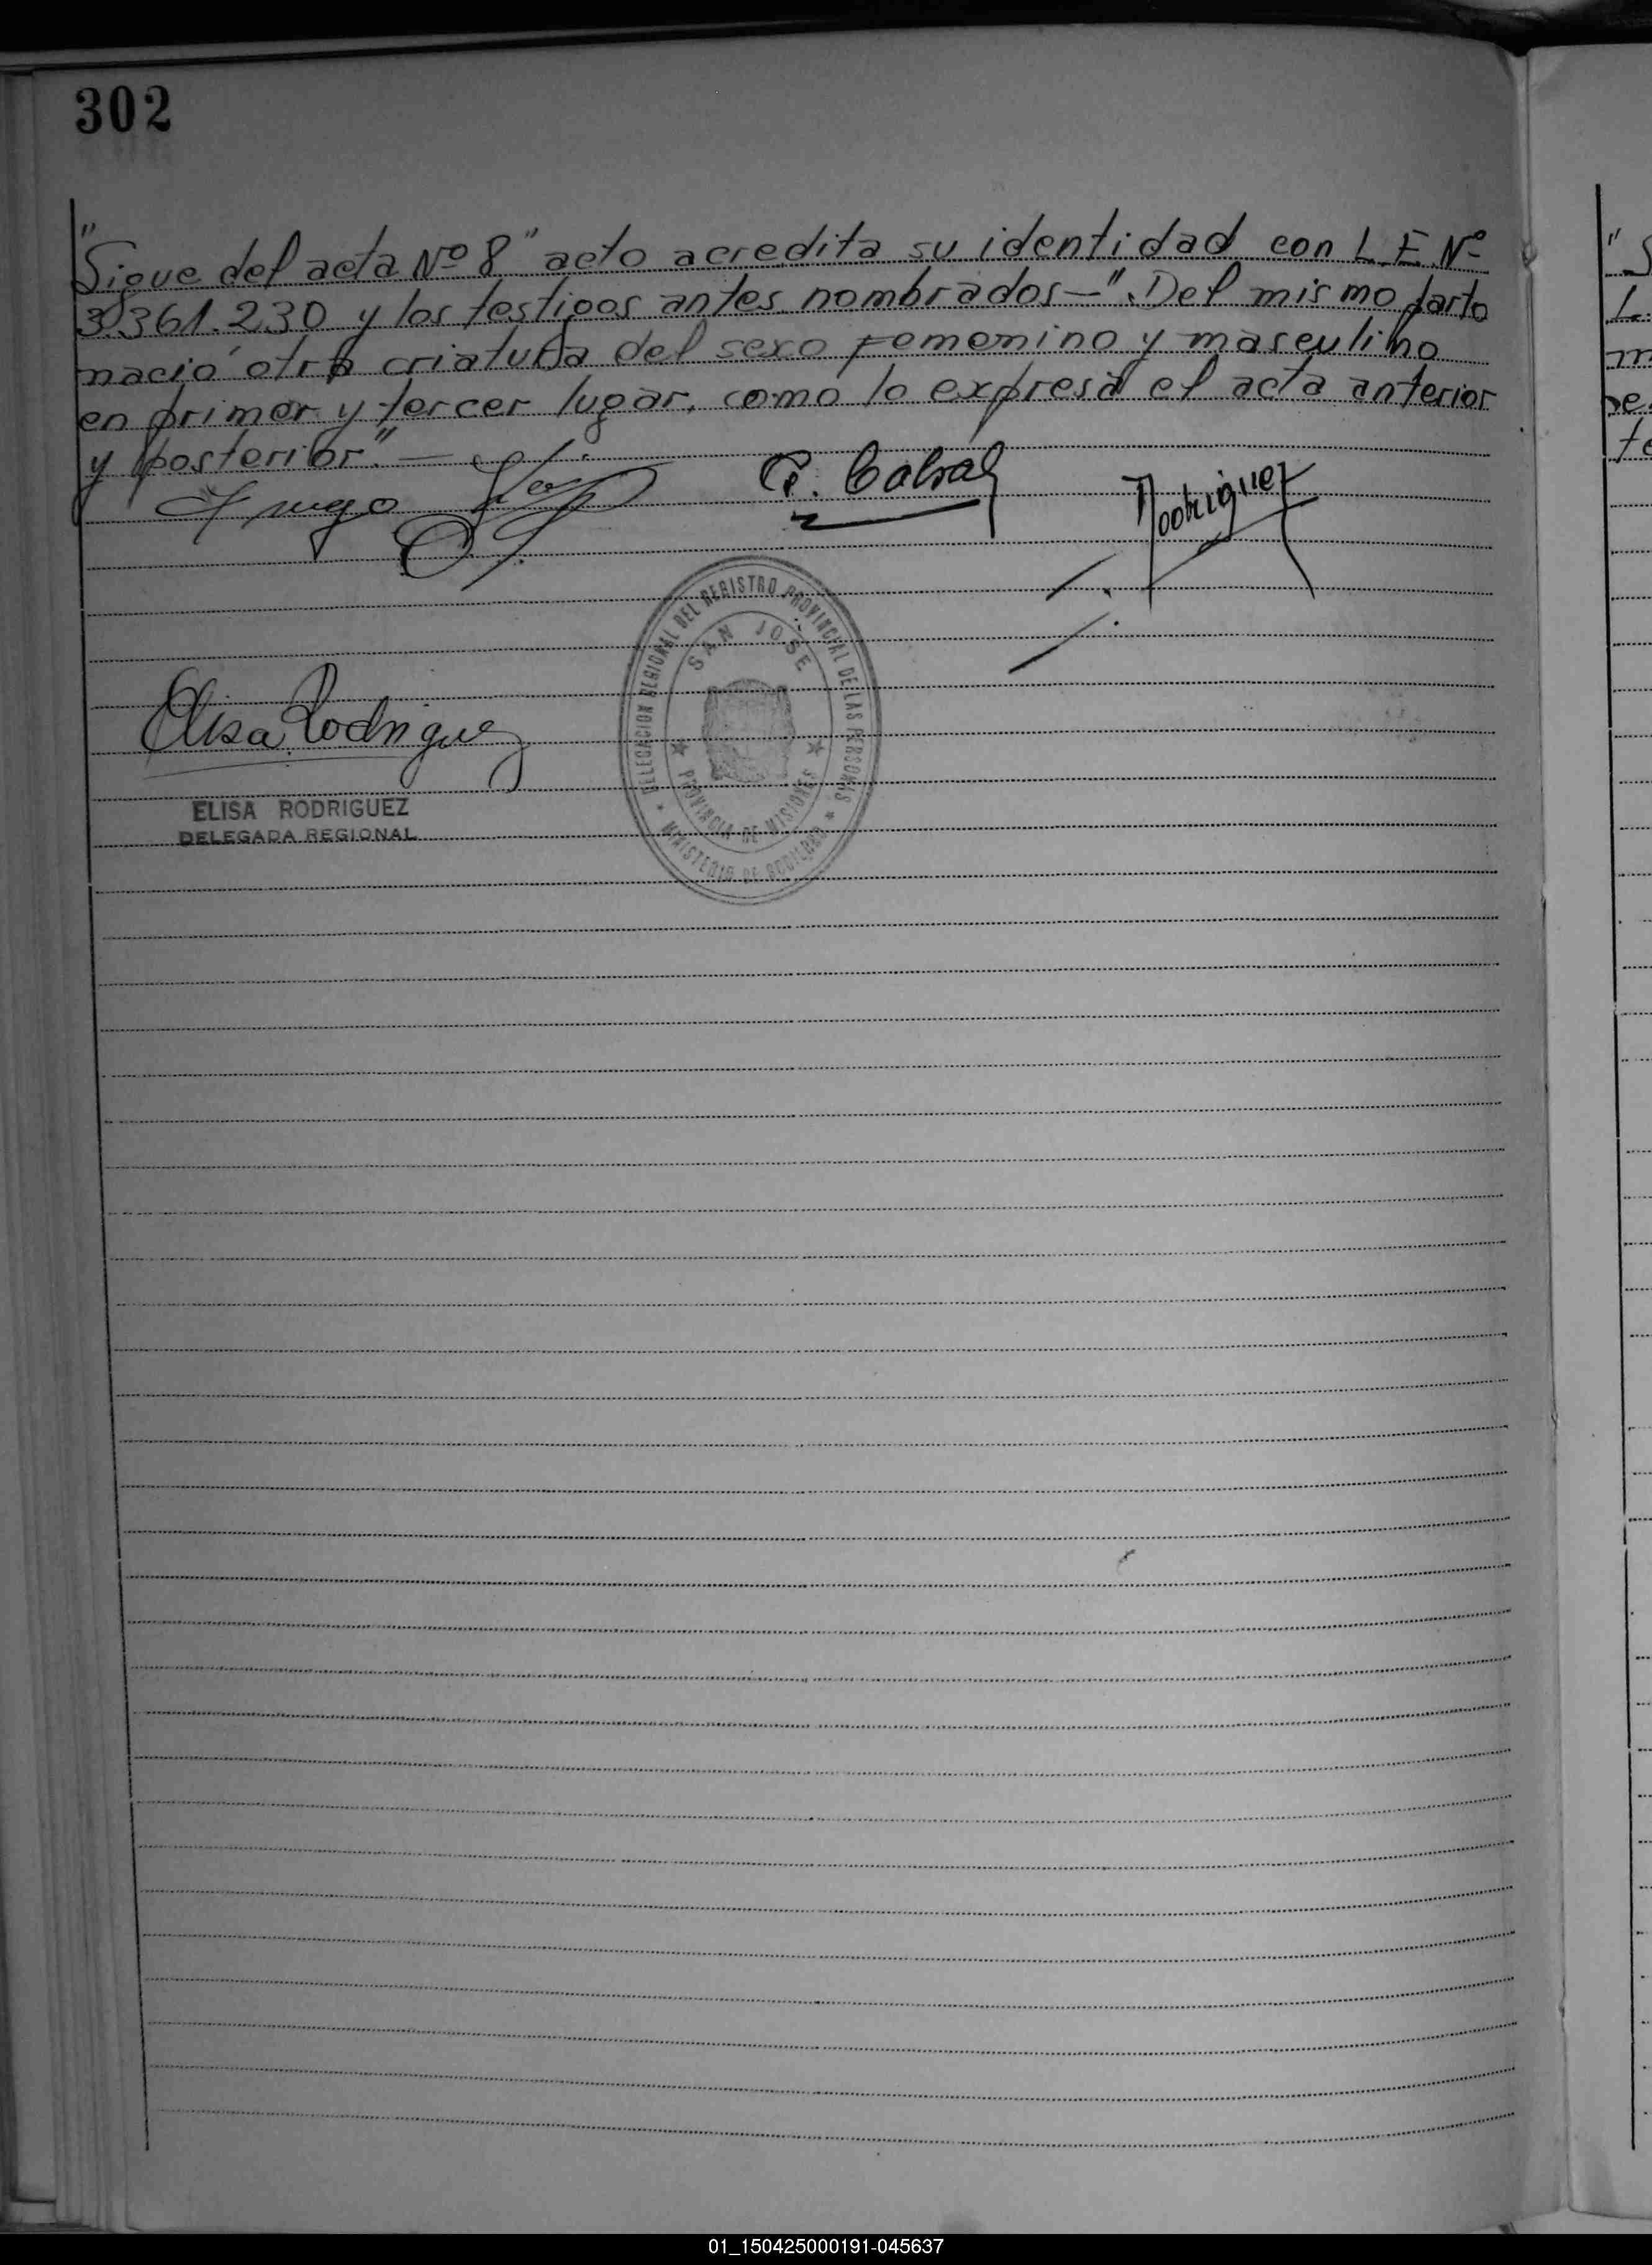 302
"Sigue del acta Nº 8" acto acredita su identidad con L.E.Nº
3.361.230 y los testigos antes nombrados—". Del mismo parto
nació otra criatura del sexo femenino y masculino
en primer y tercer lugar, como lo expresa el acta anterior
y posterior." —
Hugo
C. Cabral
Rodriguez
DELEGACION REGIONAL DEL REGISTRO PROVINCIAL DE LAS PERSONAS
SAN JOSE
PROVINCIA DE MISIONES
MINISTERIO DE GOBIERNO
Elisa Rodriguez
ELISA RODRIGUEZ
DELEGADA REGIONAL
01_150425000191-045637